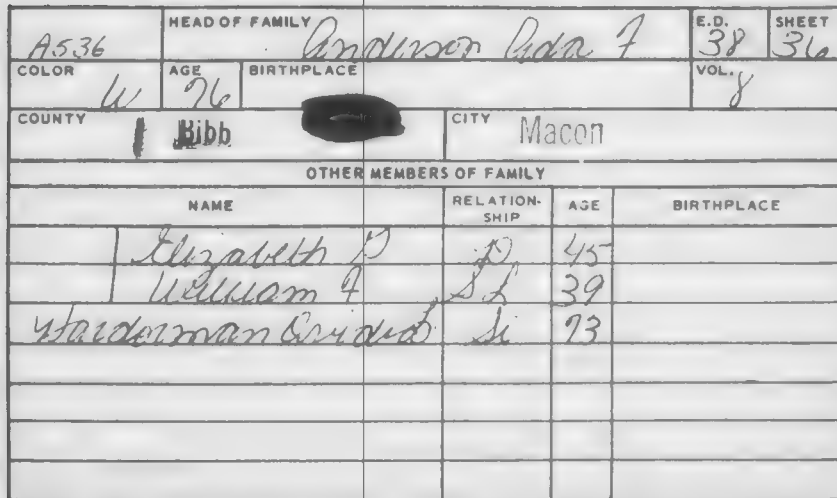 A536 HEAD OF FAMILY Anderson Ada F E.D. 38 SHEET 36
COLOR W AGE 76 BIRTHPLACE VOL. 8
COUNTY Bibb CITY Macon
OTHER MEMBERS OF FAMILY
NAME RELATION-SHIP AGE BIRTHPLACE
Elizabeth P D 45
William F SL 39
Harderman Si 73